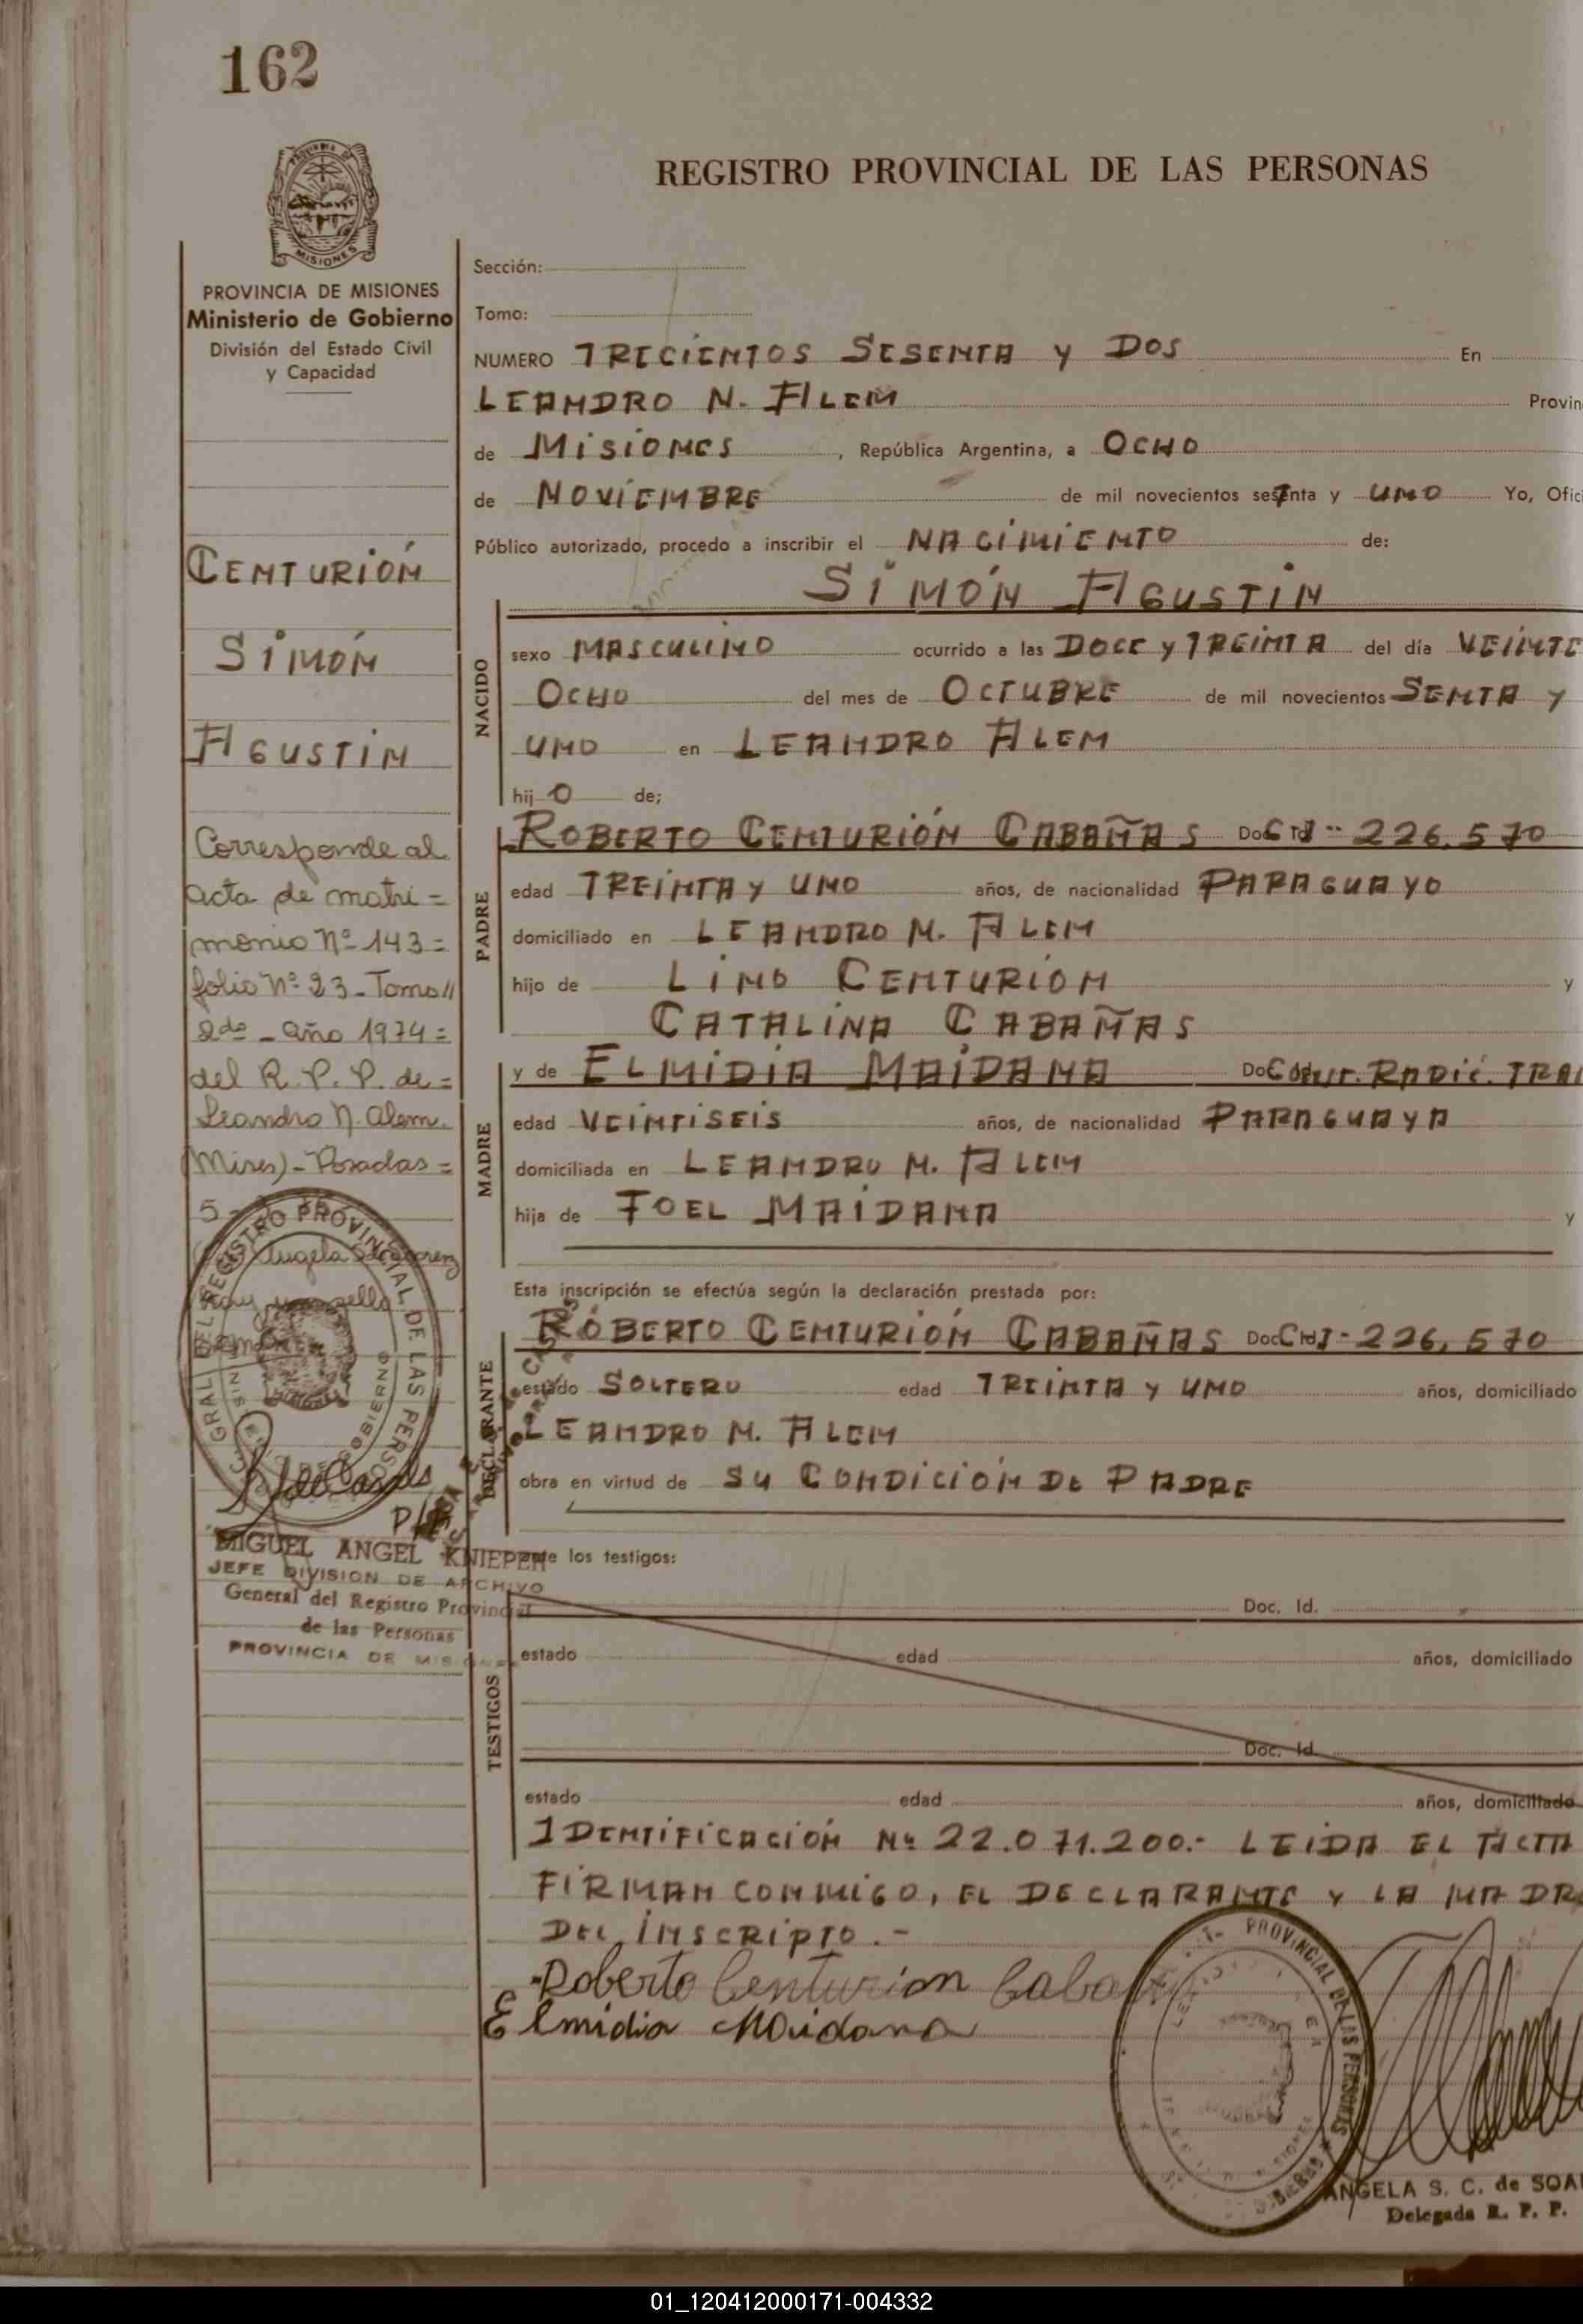 162
REGISTRO PROVINCIAL DE LAS PERSONAS
MISIONES
PROVINCIA DE MISIONES
Ministerio de Gobierno
División del Estado Civil
y Capacidad
CENTURIÓN
SIMÓN
AGUSTIN
Corresponde al
acta de matri=
monio Nº 143=
folio Nº 23-Tomo
2do - año 1974=
del R. P. P. de=
Leandro N. Alem.
(Mnes)-Posadas=
MIGUEL ANGEL KNIEPER
JEFE DIVISION DE ARCHIVO
General del Registro Provincial
de las Personas
PROVINCIA DE MISIONES
Sección:
Tomo:
NUMERO TRECIENTOS SESENTA Y DOS En
LEANDRO N. ALEM Provin
de MISIONES, República Argentina, a OCHO
de NOVIEMBRE de mil novecientos setenta y UNO Yo, Ofici
Público autorizado, procedo a inscribir el NACIMIENTO de:
SIMÓN AGUSTIN
NACIDO
sexo MASCULINO ocurrido a las DOCE Y TREINTA del día VEINTE
OCHO del mes de OCTUBRE de mil novecientos SENTA Y
UNO en LEANDRO ALEM
hijO de;
PADRE
ROBERTO CENTURIÓN CABAÑAS Doc. Id 226.570
edad TREINTA Y UNO años, de nacionalidad PARAGUAYO
domiciliado en LEANDRO N. ALEM
hijo de LINO CENTURION y
CATALINA CABAÑAS
MADRE
y de ELMIDIA MAIDANA RADIC. TRA
edad VEINTISEIS años, de nacionalidad PARAGUAYA
domiciliada en LEANDRO N. ALEM
hija de JOEL MAIDANA y
Esta inscripción se efectúa según la declaración prestada por:
DECLARANTE
ROBERTO CENTURIÓN CABAÑAS Doc. Id 226.570
estado SOLTERO edad TREINTA Y UNO años, domiciliado
LEANDRO N. ALEM
obra en virtud de SU CONDICIÓN DE PADRE
ante los testigos:
TESTIGOS
Doc. Id.
estado edad años, domiciliado
Doc. Id.
estado edad años, domiciliado
IDENTIFICACIÓN Nº 22.071.200.- LEIDA EL ACTA
FIRMAN CONMIGO, EL DECLARANTE Y LA MADRE
DEL INSCRIPTO.-
Roberto Centurion Caba
Elmidia Maidana
ANGELA S. C. de SOA
Delegada R. P. P.
01_120412000171-004332